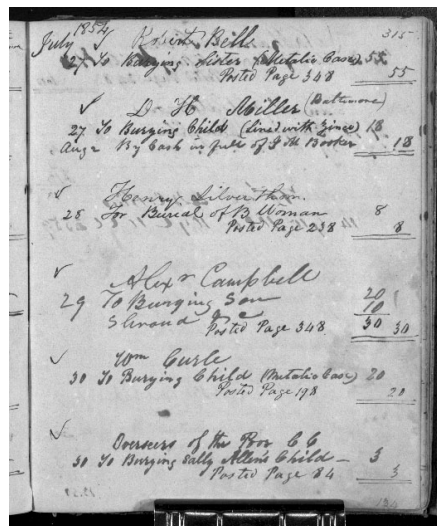 1854 315
July ✓ Robert Bell
27 To Burying Sister (Metalic Case) 55
Posted Page 348 55
✓ D H Miller (Baltimore)
27 To Burying Child (Lined with Zinc) 18
Aug 2 By Cash in full of J M Booker 18
✓ Henry Silverthorn
28 For Burial of B Woman 8
Posted Page 238 8
✓ Alexr Campbell
29 To Burying Son 20
Shroud &c 10
Posted Page 348 30 30
✓ Wm Curle
30 To Burying Child (Metalic Case) 20
Posted Page 198 20
✓ Overseers of the Poor E C
30 To Burying Sally Allen's Child — 3
Posted Page 84 3